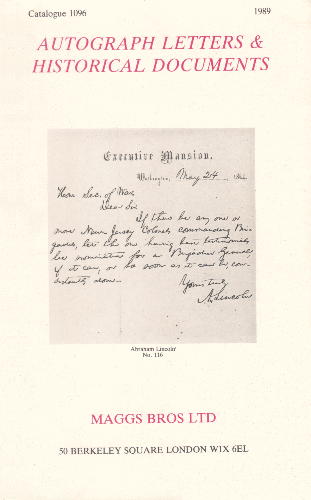 Catalogue 1096
1989
AUTOGRAPH LETTERS &
HISTORICAL DOCUMENTS
Executive Mansion,
Washington, May 24, 186
Hon. Sec. of War
Dear Sir
If there be any one or
more New-Jersey Colonels commanding Bri-
gades, let the one having best testimonials
be nominated for a Brigadier General
if it can, or as soon as it can be, con-
sistently done.
Yours truly
A. Lincoln
Abraham Lincoln
No. 116
MAGGS BROS LTD
50 BERKELEY SQUARE LONDON W1X 6EL